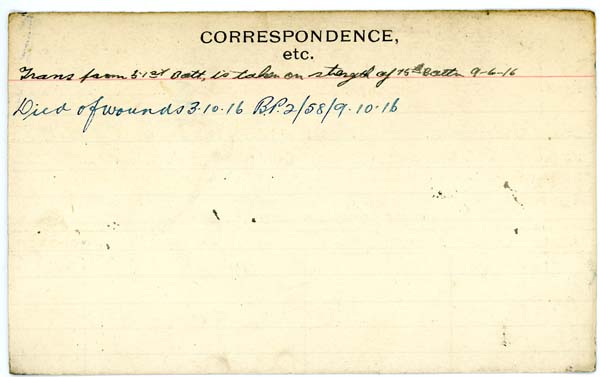 CORRESPONDENCE,
etc.
Trans from 51st Batt, is taken on strength of 15th Battn 9-6-16
Died of wounds 3.10.16 B.P.2/58/9.10.16